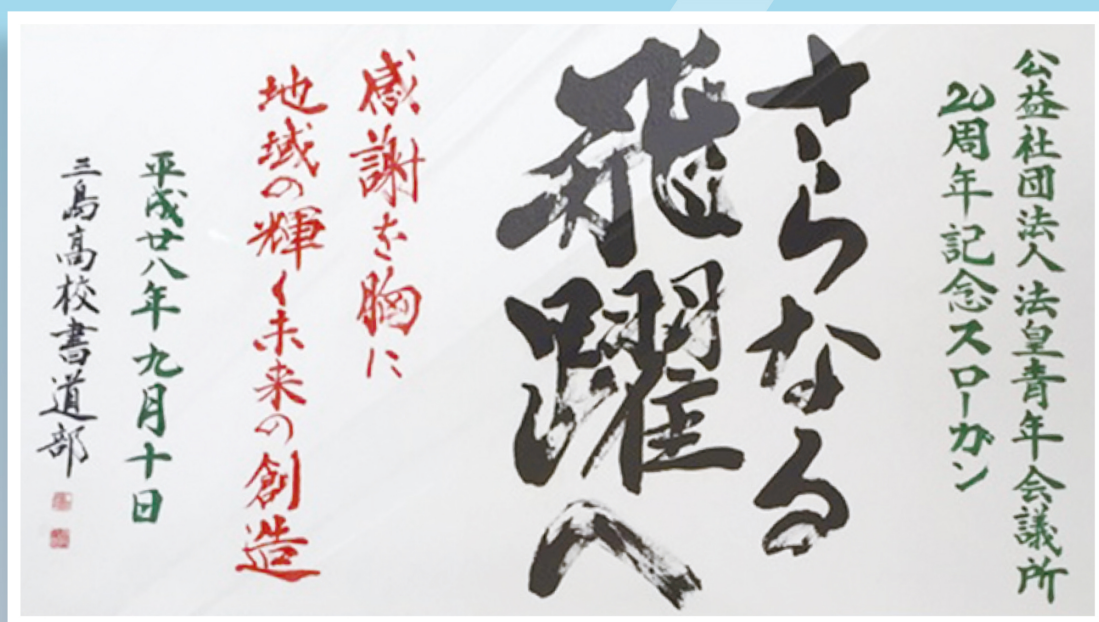 公益社団法人法皇青年会議所
20周年記念スローガン
さらなる
飛躍へ
感謝を胸に
地域の輝く未来の創造
平成廿八年九月十日
三島高校書道部